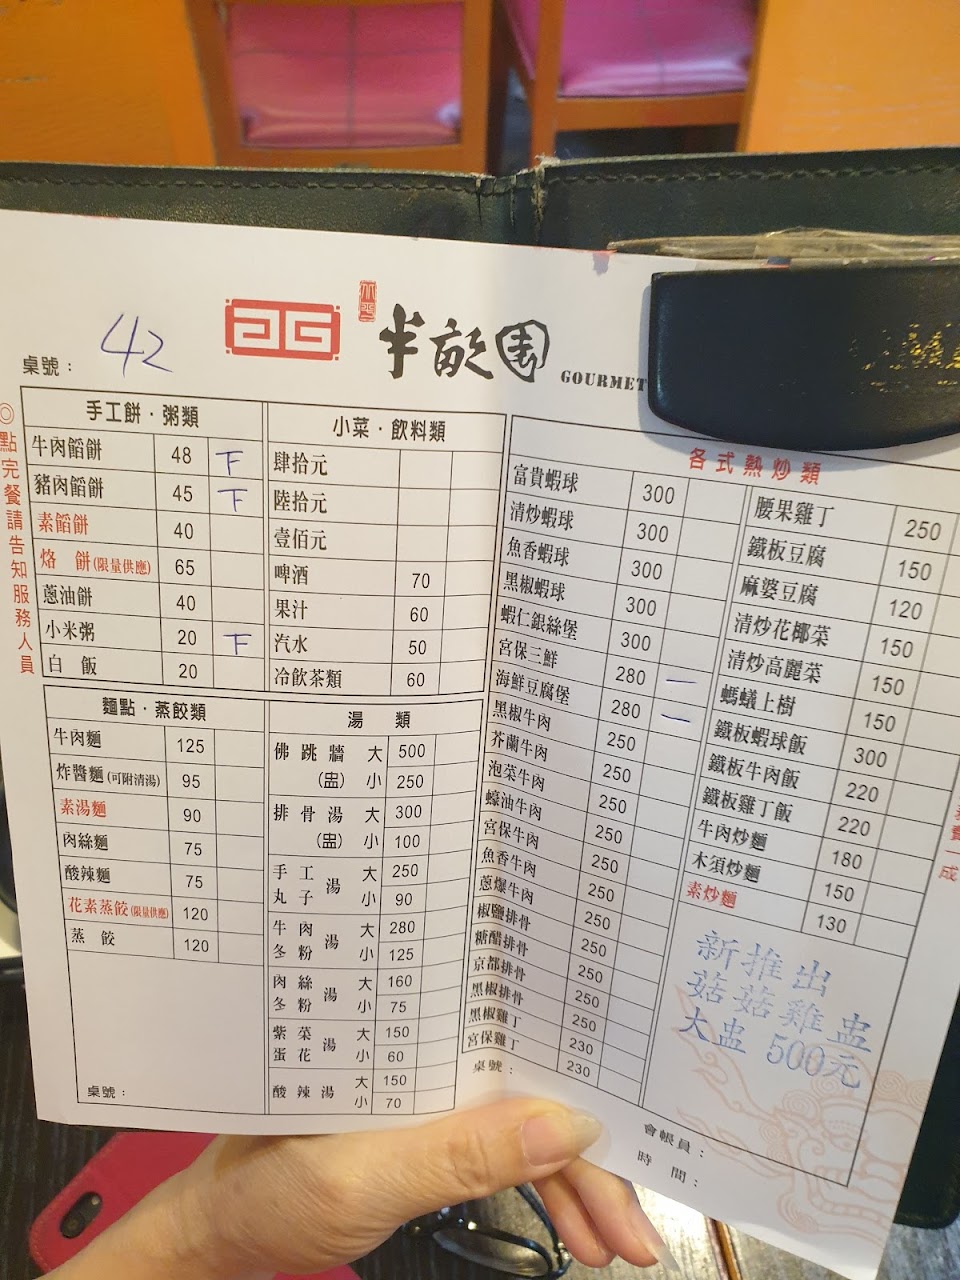 桌號： 42
半畝園
GOURMET
◎點完餐請告知服務人員
手工餅·粥類
牛肉餡餅 48 下
豬肉餡餅 45 下
素餡餅 40
烙 餅(限量供應) 65
蔥油餅 40
小米粥 20 下
白 飯 20
小菜·飲料類
肆拾元
陸拾元
壹佰元
啤酒 70
果汁 60
汽水 50
冷飲茶類 60
麵點·蒸餃類
牛肉麵 125
炸醬麵(可附清湯) 95
素湯麵 90
肉絲麵 75
酸辣麵 75
花素蒸餃(限量供應) 120
蒸 餃 120
桌號：
湯 類
佛跳牆 大 500
(盅) 小 250
排骨湯 大 300
(盅) 小 100
手工丸子湯 大 250
小 90
牛肉冬粉湯 大 280
小 125
肉絲冬粉湯 大 160
小 75
紫菜蛋花湯 大 150
小 60
酸辣湯 大 150
小 70
各式熱炒類
富貴蝦球 300
清炒蝦球 300
魚香蝦球 300
黑椒蝦球 300
蝦仁銀絲堡 300
宮保三鮮 280 一
海鮮豆腐堡 280 一
黑椒牛肉 250
芥蘭牛肉 250
泡菜牛肉 250
蠔油牛肉 250
宮保牛肉 250
魚香牛肉 250
蔥爆牛肉 250
椒鹽排骨 250
糖醋排骨 250
京都排骨 250
黑椒排骨 250
黑椒雞丁 230
宮保雞丁 230
桌號：
腰果雞丁 250
鐵板豆腐 150
麻婆豆腐 120
清炒花椰菜 150
清炒高麗菜 150
螞蟻上樹 150
鐵板蝦球飯 300
鐵板牛肉飯 220
鐵板雞丁飯 220
牛肉炒麵 180
木須炒麵 150
素炒麵 130
新推出
菇菇雞盅
大盅 500元
會帳員：
時 間：
一成